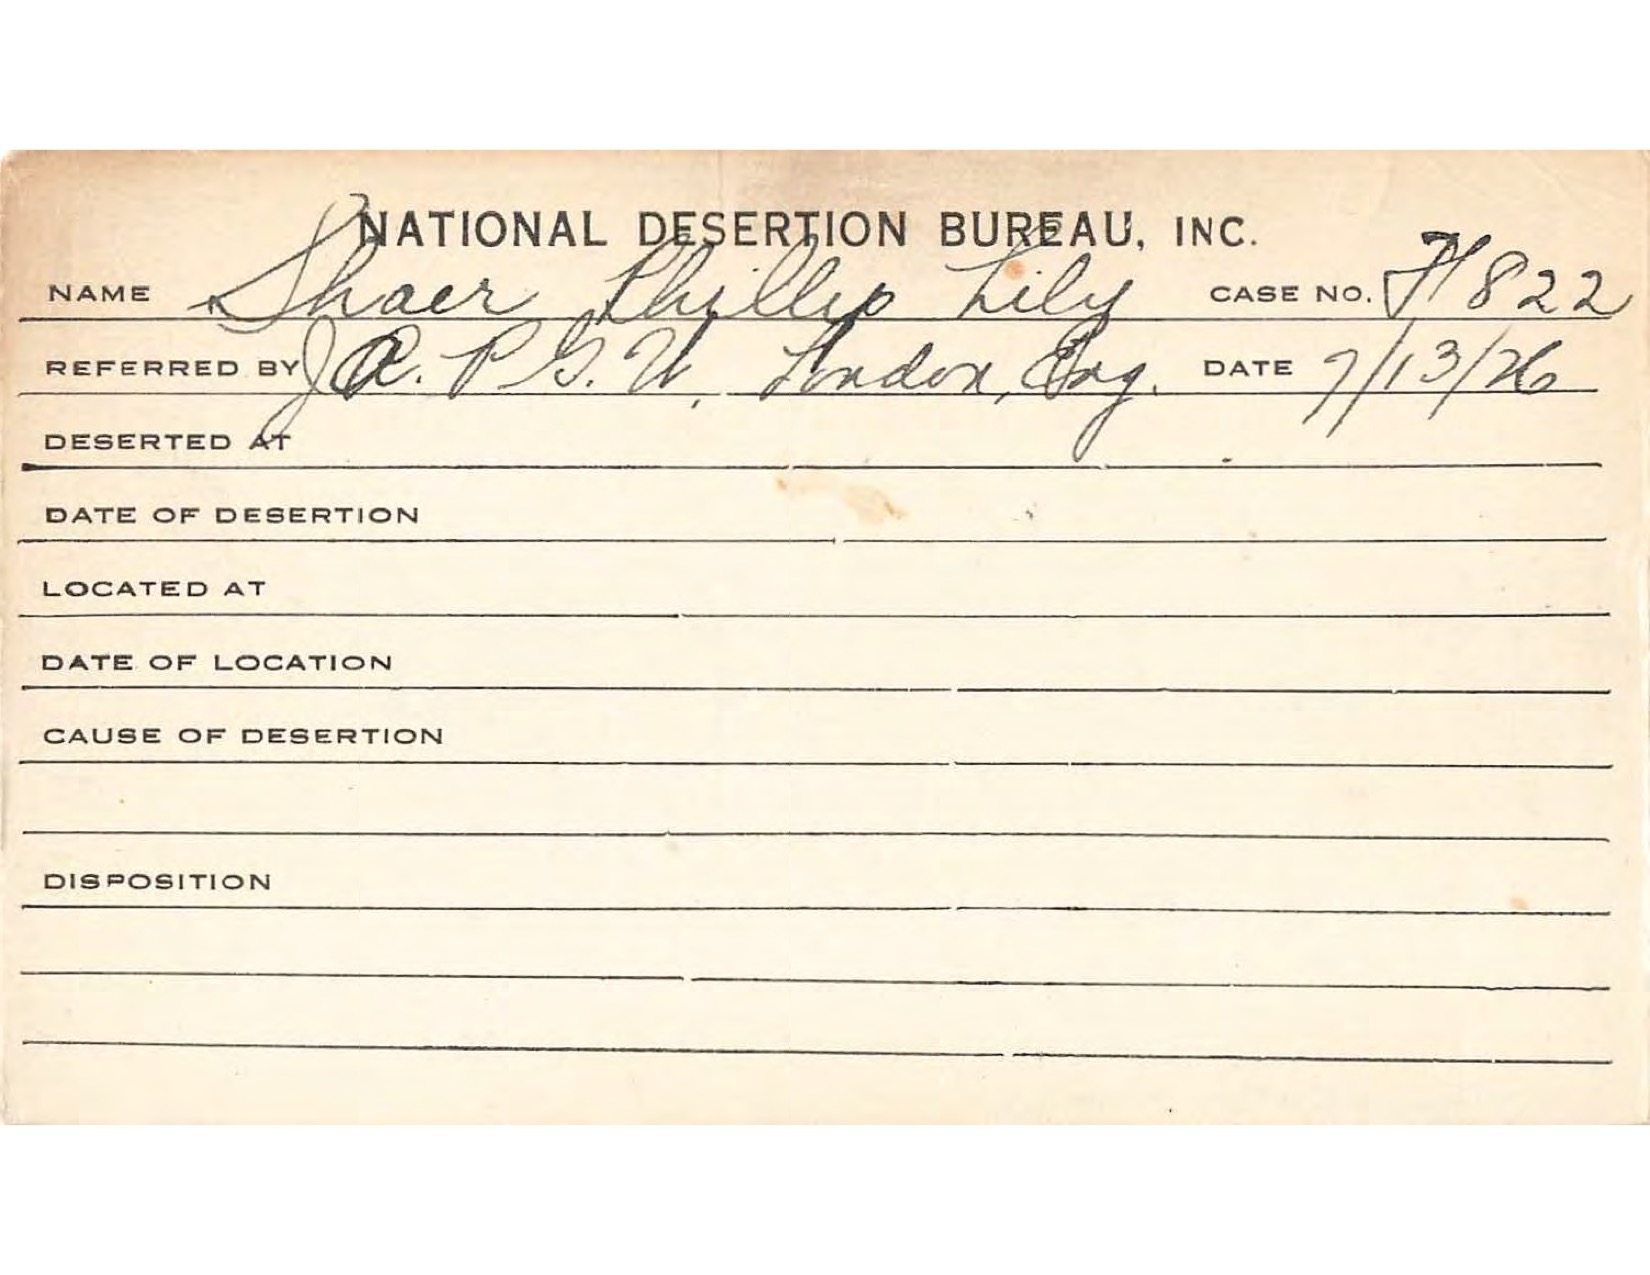 NATIONAL DESERTION BUREAU, INC.
NAME Shaer Phillip Lily CASE NO. F1822
REFERRED BY J.A.P.G.W, London, Eng. DATE 7/13/26
DESERTED AT
DATE OF DESERTION
LOCATED AT
DATE OF LOCATION
CAUSE OF DESERTION
DISPOSITION